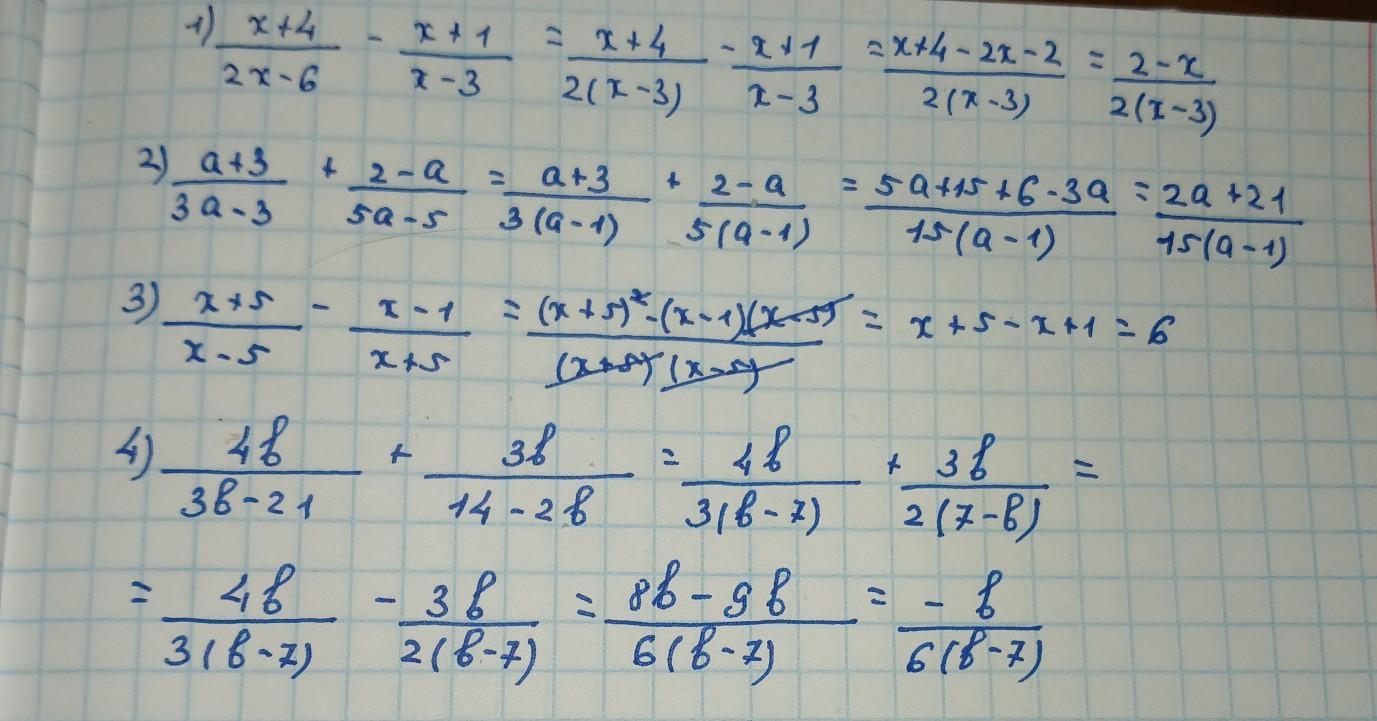 1) (x+4)/(2x-6) - (x+1)/(x-3) = (x+4)/(2(x-3)) - (x+1)/(x-3) = (x+4-2x-2)/(2(x-3)) = (2-x)/(2(x-3))
2) (a+3)/(3a-3) + (2-a)/(5a-5) = (a+3)/(3(a-1)) + (2-a)/(5(a-1)) = (5a+15+6-3a)/(15(a-1)) = (2a+21)/(15(a-1))
3) (x+5)/(x-5) - (x-1)/(x+5) = ((x+5)²-(x-1)(x-5))/((x+5)(x-5)) = x+5-x+1=6
4) 4b/(3b-21) + 3b/(14-2b) = 4b/(3(b-7)) + 3b/(2(7-b)) =
= 4b/(3(b-7)) - 3b/(2(b-7)) = (8b-9b)/(6(b-7)) = -b/(6(b-7))